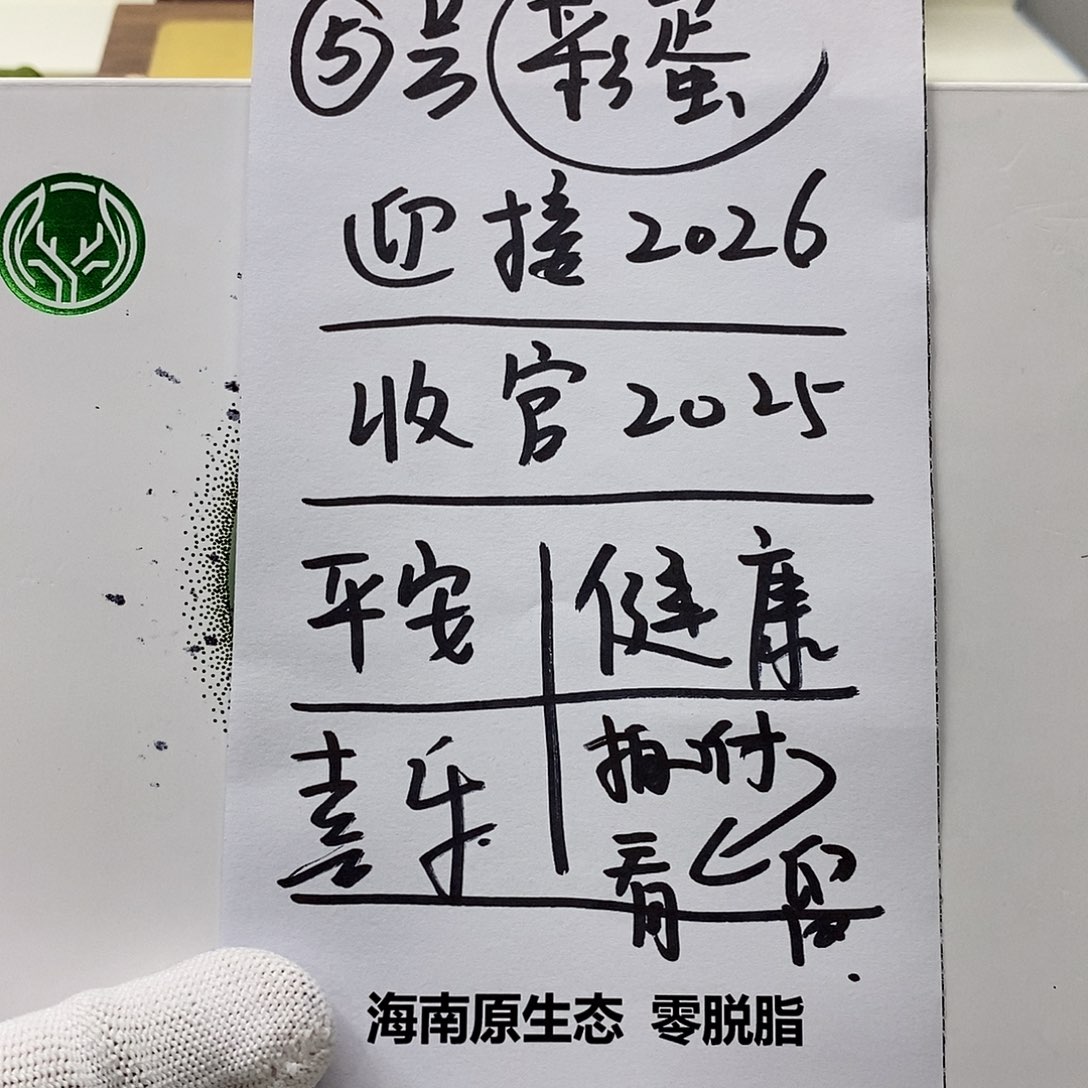 ⑤号 彩蛋
迎接2026
收官2025
平安 健康
喜乐 拍付
看留
海南原生态 零脱脂